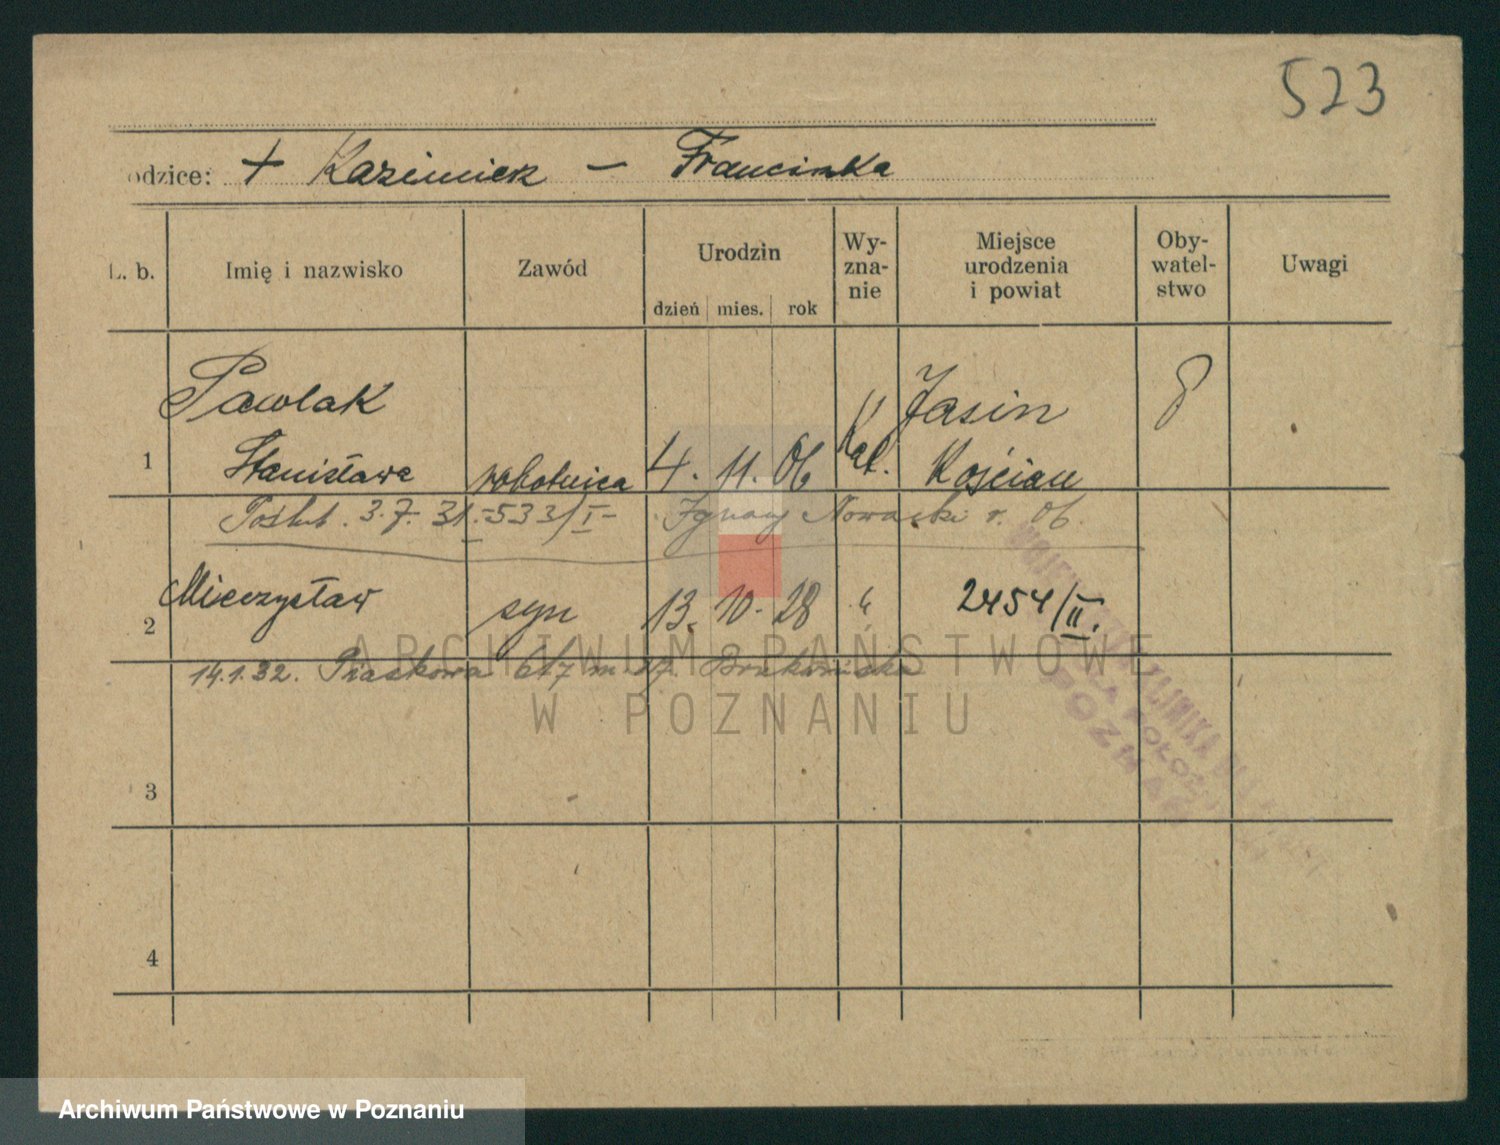 523
odzice: + Kazimierz – Franciszka
L. b. Imię i nazwisko Zawód Urodzin dzień mies. rok Wy-zna-nie Miejsce urodzenia i powiat Oby-watel-stwo Uwagi
Pawlak Jasin
1 Stanisława robotnica 4. 11. 06 Kat. Kościan
Poślub. 3.7.31.-533/I- Ignacy Nowacki r. 06.
2 Mieczysław syn 13. 10. 28 " 2454/II.
14.1.32. Piaskowa 6/7 m.
3
4
ARCHIWUM PAŃSTWOWE
W POZNANIU
POZNAŃ
Archiwum Państwowe w Poznaniu